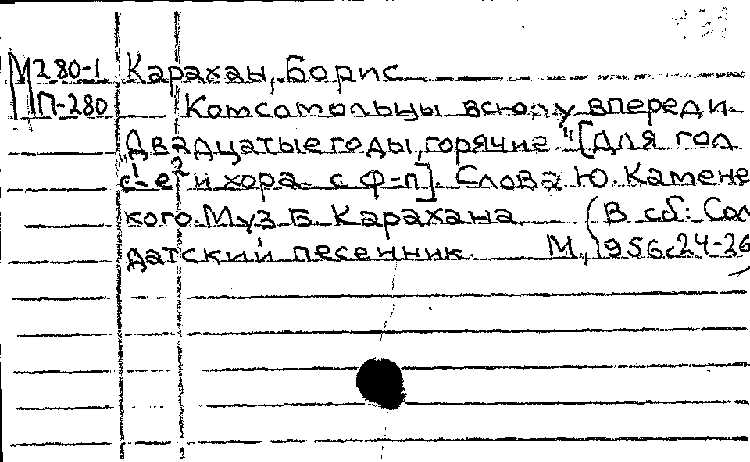 М 280-1 Карахан, Борис
П-280 Комсомольцы всюду впереди.
„Двадцатые годы, горячие" [Для гол
с¹-е² и хора с ф-п]. Слова Ю. Камене
кого. Муз Б. Карахана (В сб: Сол
датский песенник. М., 1956 с 24-26